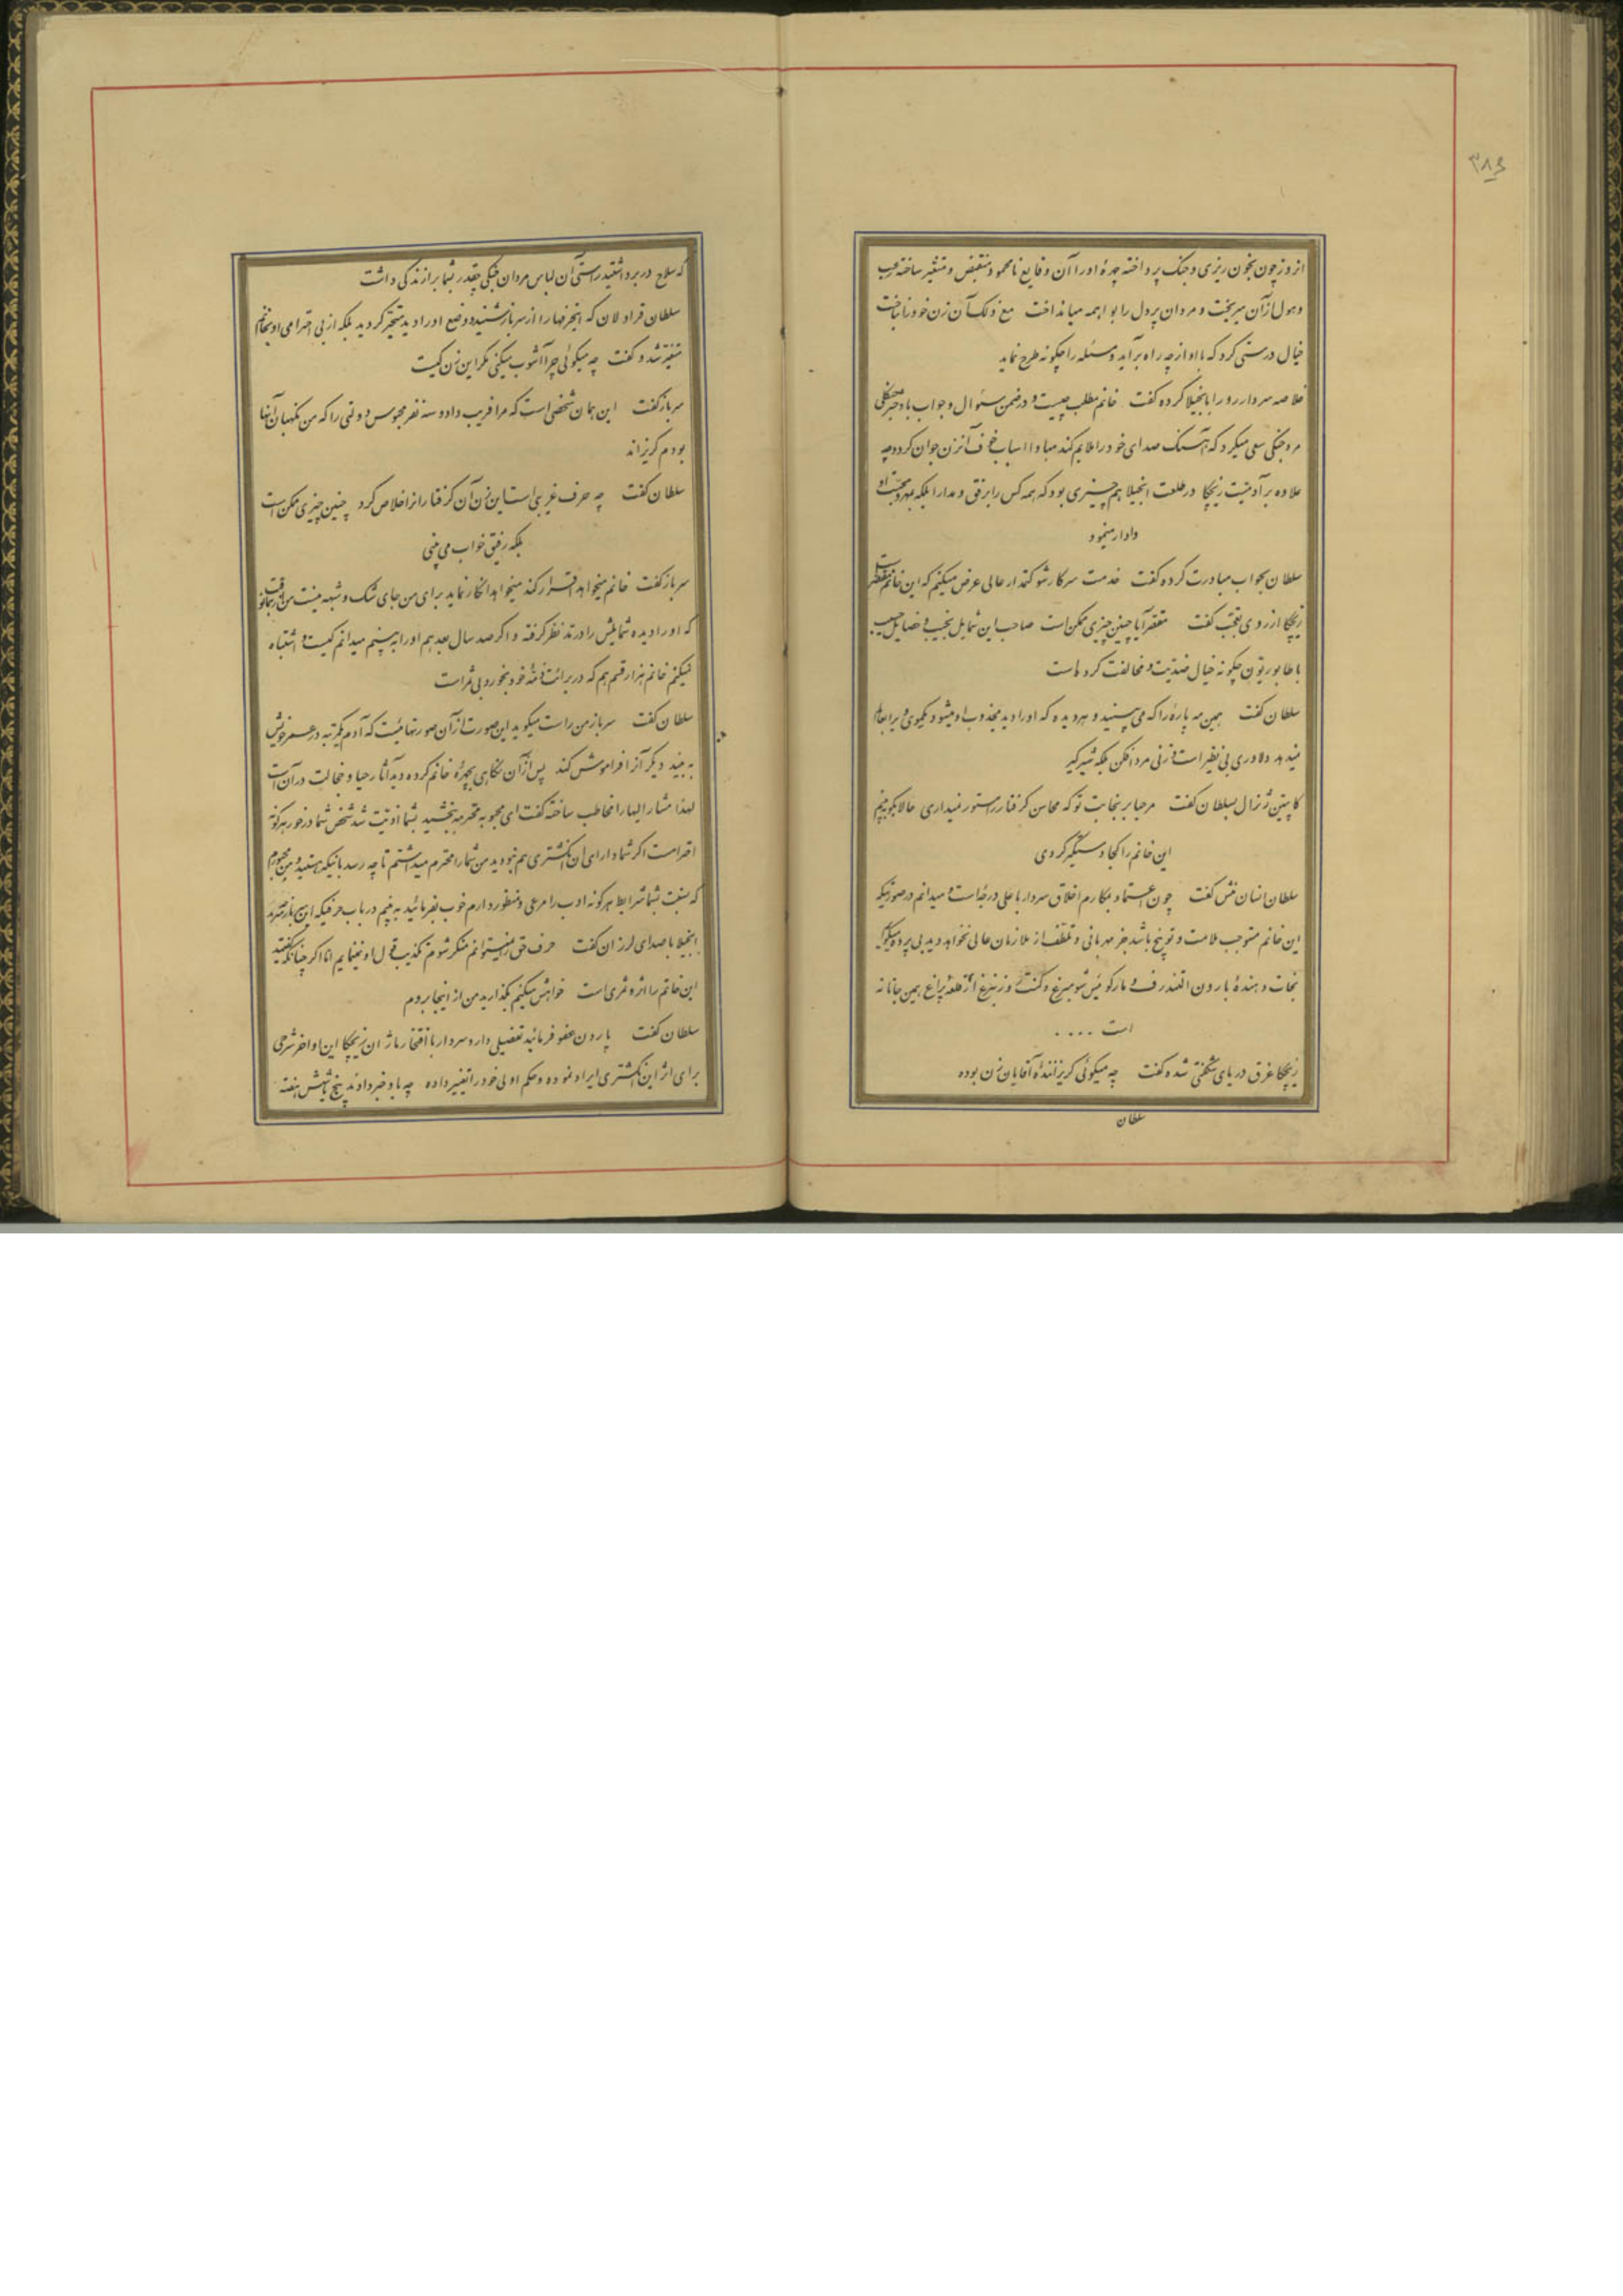 ۳۸۶
انروز چون بخون ریزی و جنگ پرداخته چهرهٔ او را آن وقایع نامحمود منقبض و متغیر ساخته رعب
و هول از آن میریخت و مردان پردل را بواهمه میانداخت مع ذلک آن زن خود را نباخت
خیال درستی کرد که با او از چه راه برآید و مسئله را چگونه طرح نماید
خلاصه سردار رو را بانجیلا کرده گفت خانم مطلب چیست و در ضمن سئوال و جواب با دختر جنگلی
مرد جنگی سعی میکرد که آهنگ صدای خود را ملایم کند مبادا اسباب خوف آنزن جوان گردد چه
علاوه بر آدمیت زیچکا در طلعت انجیلا هم چیزی بود که همه کس را برفق و مدارا بلکه بمهر و محبت او
وادار مینمود
سلطان بجواب مبادرت کرده گفت خدمت سرکار شوکتمدار عالی عرض میکنم که این خانم مقصر است
زیچکا از روی تعجب گفت مقصر آیا چنین چیزی ممکن است صاحب این شمایل نجیب و خصایل حسیب
با طابوریتون چگونه خیال ضدیت و مخالفت کرده است
سلطان گفت همین مه پاره را که می بینید و هر دیده که او را دید مجذوب او میشود و یکموی ویرا بعالم
نمیدهد دلاوری بی نظیر است و زنی مرد افکن بلکه شیرگیر
کاپیتن ژنرال بسلطان گفت مرحبا بر نجابت تو که محاسن گرفتار را مستور نمیداری حالا بگو ببینم
این خانم را کجا دستگیر کردی
سلطان انسان منش گفت چون اعتماد بمکارم اخلاق سردار با علی درجه است و میدانم در صورتیکه
این خانم مستوجب ملامت و توبیخ باشد جز مهربانی و تلطف از ملازمان عالی نخواهد دید بی پرده میگویم
نجات دهندهٔ بارون التندرف و مارکوئیس شومبرغ و کنت روزنبرغ از قلعهٔ پراغ همین جانانه
است ....
زیچکا غرق دریای شگفتی شده گفت چه میگوئی گریزانندهٔ آقایان زن بوده
سلطان
که سلاح در بر داشتید راستی آن لباس مردان جنگی چقدر بشما برازندگی داشت
سلطان قراولان که اینحرفها را از سرباز شنید و وضع او را دید متحیر گردید بلکه از بی احترامی او بخانم
متغیر شد و گفت چه میگوئی چرا آشوب میکنی مگر این زن کیست
سرباز گفت این همان شخصی است که مرا فریب داد و سه نفر محبوس دولتی را که من نگهبان آنها
بودم گریزاند
سلطان گفت چه حرف غریبی است این زن آن گرفتاران را خلاص کرد چنین چیزی ممکن است
بلکه رفیق خواب می بینی
سرباز گفت خانم میخواهد اقرار کند میخواهد انکار نماید برای من جای شک و شبهه نیست من
که او را دیده شمایلش را در مد نظر گرفته و اگر صد سال بعد هم او را ببینم میدانم کیست و اشتباه
نمیکنم خانم هزار قسم هم که در برائت ذمهٔ خود بخورد بی ثمر است
سلطان گفت سرباز من راست میگوید این صورت از آن صورتها نیست که آدم یکمرتبه در عمر خویش
به بیند دیگر آنرا فراموش کند پس از آن نگاهی بچهرهٔ خانم کرده دید آثار حیا و خجالت در آن است
لهذا مشار الیها را مخاطب ساخته گفت ای محبوبه محترمه ببخشید بشما اذیت شد شخص شما درخور هرگونه
احترامست اگر شما دارای آن انگشتری هم نبودید من شما را محترم میداشتم تا چه رسد باینکه هستید و من مجبورم
که نسبت بشما شرایط هرگونه ادب را مرعی و منظور دارم خوب بفرمائید به بینم در باب حرفیکه این سرباز میزند
انجیلا با صدای لرزان گفت حرف حق را نمیتوانم منکر شوم تکذیب قول او نمینمایم اما اگر چنانکه گفتید
این خاتم را اثر و ثمری است خواهش میکنم بگذارید من از اینجا بروم
سلطان گفت پاردن عفو فرمائید تفصیلی دارد سردار با افتخار ماژان زیچکا این اواخر شرحی
برای اثر این انگشتری ایراد نموده و حکم اولی خود را تغییر داده چه باو خبر دادند پنج شش هفته